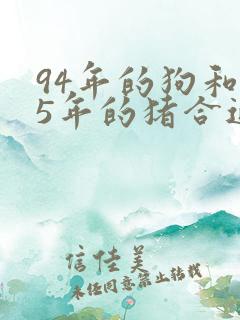 94年的狗和
5年的猪合适
信佳美
未经同意禁止转载